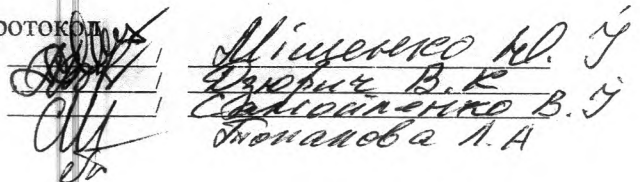 ротокол
/ Міщенко Ю. І
/ Дзюрич В. К
/ Самойленко В. І
Топанова Л. А